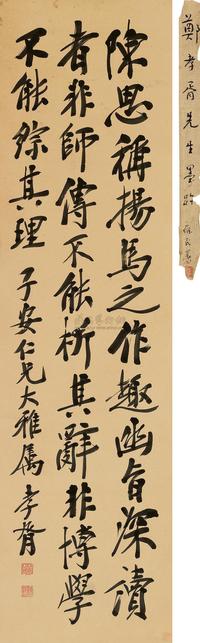 陳思稱揚馬之作趣幽旨深讀
者非師傅不能析其辭非博學
不能綜其理 子安仁兄大雅屬 孝胥
鄭孝胥先生墨跡